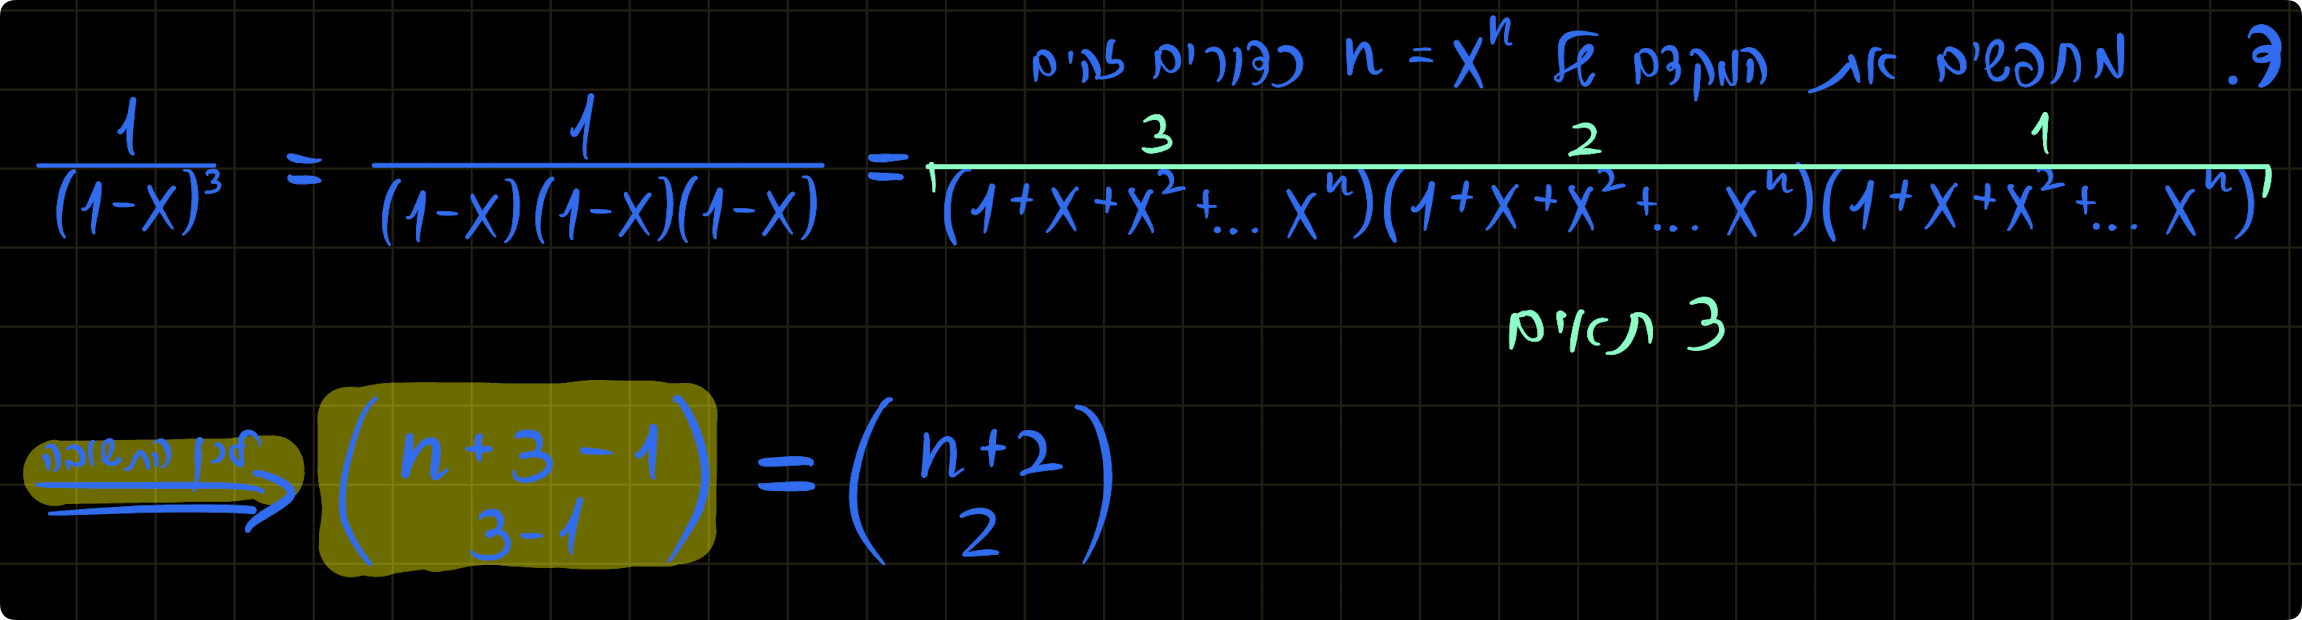 3. מחפשים את המקדם של xⁿ = n כדורים זהים
3 2 1
1/(1-x)³ = 1/((1-x)(1-x)(1-x)) = (1+x+x²+... xⁿ)(1+x+x²+... xⁿ)(1+x+x²+... xⁿ)
3 תאים
לכן התשובה ⇒ (n+3-1 / 3-1) = (n+2 / 2)